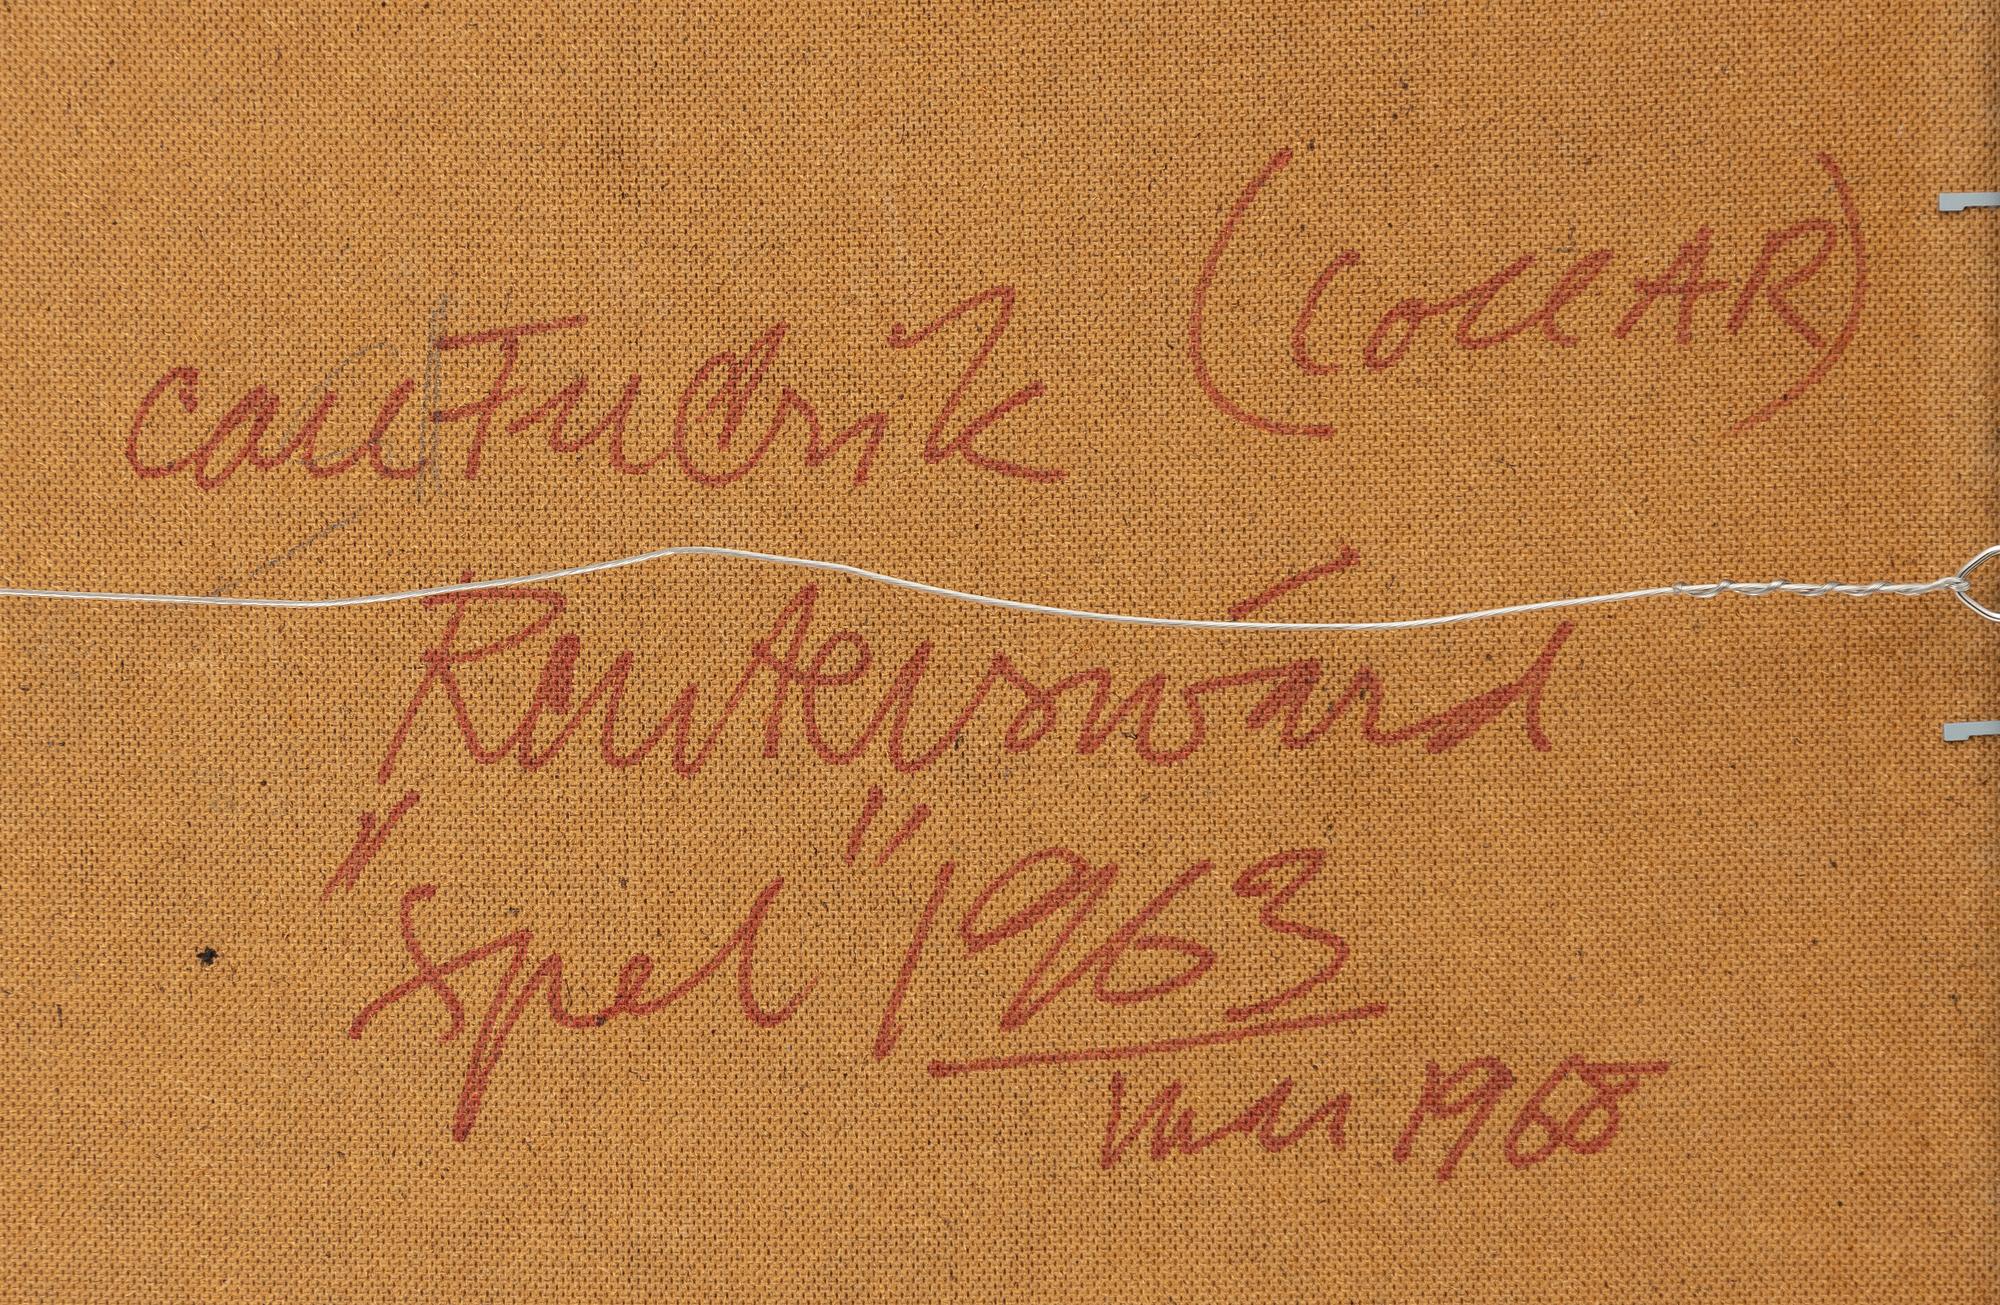 Carl Fredrik (COLLAR)
Reuterswärd
"Spel" 1963
mars 1968